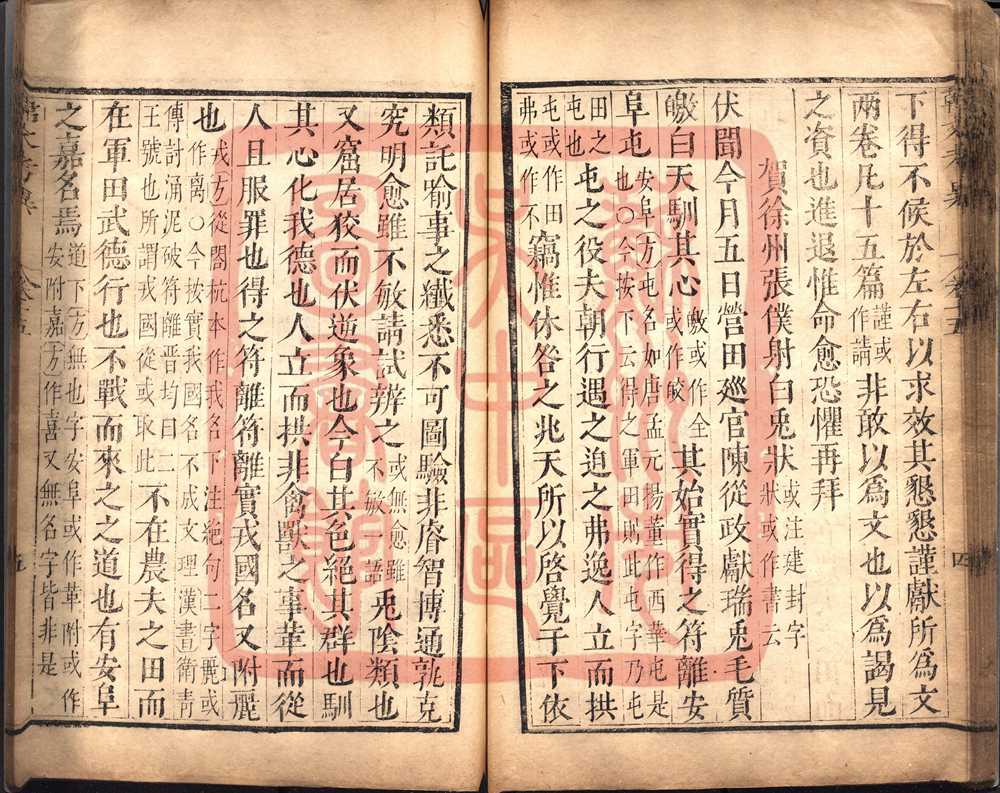 下得不候於左右以求效其懇懇謹獻所爲文
兩卷凡十五篇謹或作請非敢以爲文也以爲謁見
之資也進退惟命愈恐懼再拜
賀徐州張僕射白兎狀或注建封字狀或作書云
伏聞今月五日營田廵官陳從政獻瑞兎毛質
皦白天馴其心皦或作全或作皎其始實得之符離安
阜屯安阜方屯名如唐孟元楊董作西華屯是也○今按下云得之軍田則此屯字乃屯
田之屯也屯之役夫朝行遇之迫之弗逸人立而拱
屯或作田弗或作不竊惟休咎之兆天所以啓覺于下依
類託喻事之纎悉不可圖驗非睿智博通孰克
究明愈雖不敏請試辨之或無愈雖不敏一語兎陰類也
又窟居狡而伏逆象也今白其色絕其群也馴
其心化我德也人立而拱非禽獸之事革而從
人且服罪也得之符離符離實戎國名又附麗
也戎方從閣杭本作我名下注絕句二字麗或作离○今按實我國名不成文理漢書衛青
傳討涌泥破符離晋均曰二王號也所謂戎國從或取此不在農夫之田而
在軍田武德行也不戰而來之之道也有安阜
之嘉名焉道下方無也字安阜或作華附或作安附嘉方作喜又無名字皆非是
韓文考異
卷十五
四
五